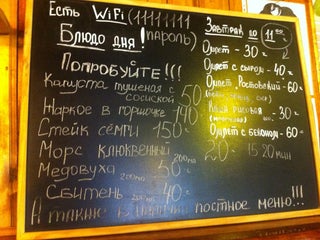 Есть WiFi (11111111
пароль)
Блюдо дня!
Попробуйте!!!
Капуста тушеная с
сосиской 50
Жаркое в горшочке 190
Стейк сёмги 150
Морс клюквенный 200мл 20 15-20 мин
Медовуха 200мл 50
Сбитень 200мл 40
А также в меню постное меню!!!
Завтрак до 11
Омлет - 30
Омлет с сыром - 40
Омлет "Ростовский" - 60
Каша рисовая
- 30
Омлет с беконом - 60